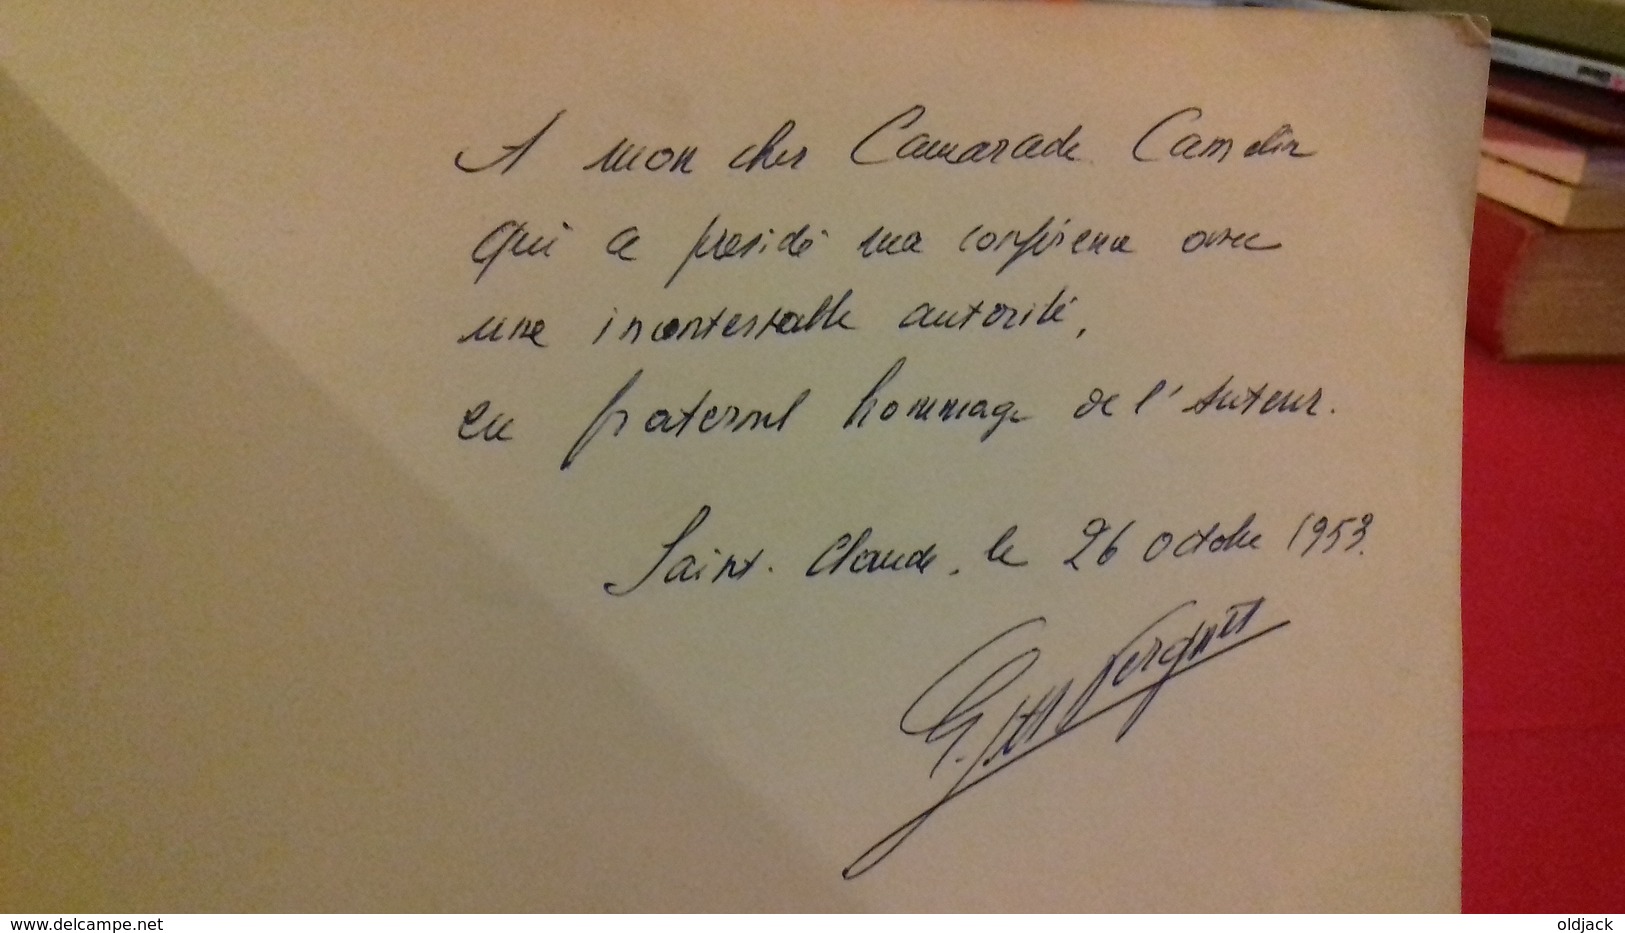 A mon cher Camarade Camelin
qui a présidé ma conférence avec
une incontestable autorité,
en fraternel hommage de l'Auteur.
Saint-Claude, le 26 octobre 1953.
www.delcampe.net
oldjack